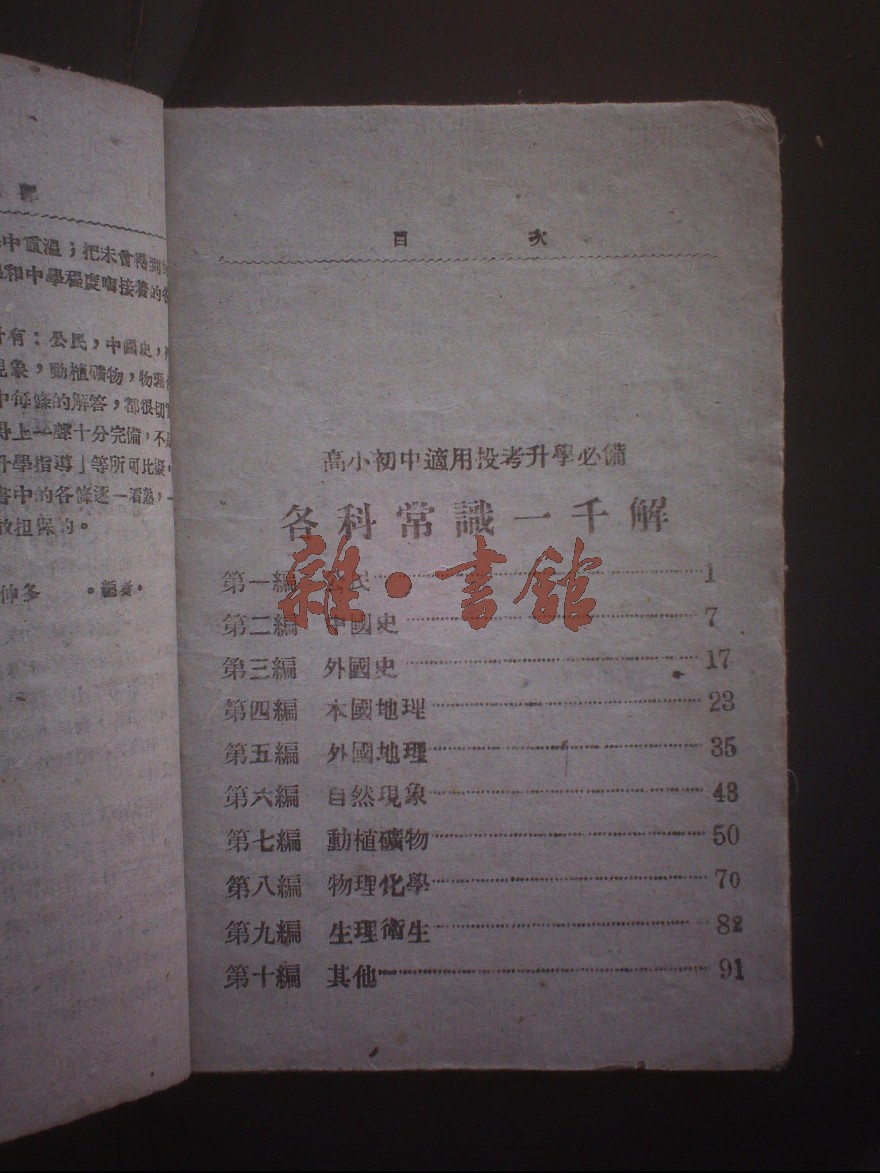 中重溫；把未曾得到
和中學程度啣接着的各
有：公民，中國史，
現象，動植礦物，物理
中每條的解答，都很切實
上一聲十分完備，不
升學指導」等所可比擬，
書中的各條逐一看熟，
敢担保的。
仲多 編者。
目 次
高小初中適用投考升學必備
各科常識一千解
第一編 公民 1
第二編 中國史 7
第三編 外國史 17
第四編 本國地理 23
第五編 外國地理 35
第六編 自然現象 43
第七編 動植礦物 50
第八編 物理化學 70
第九編 生理衛生 82
第十編 其他 91
雜·書館